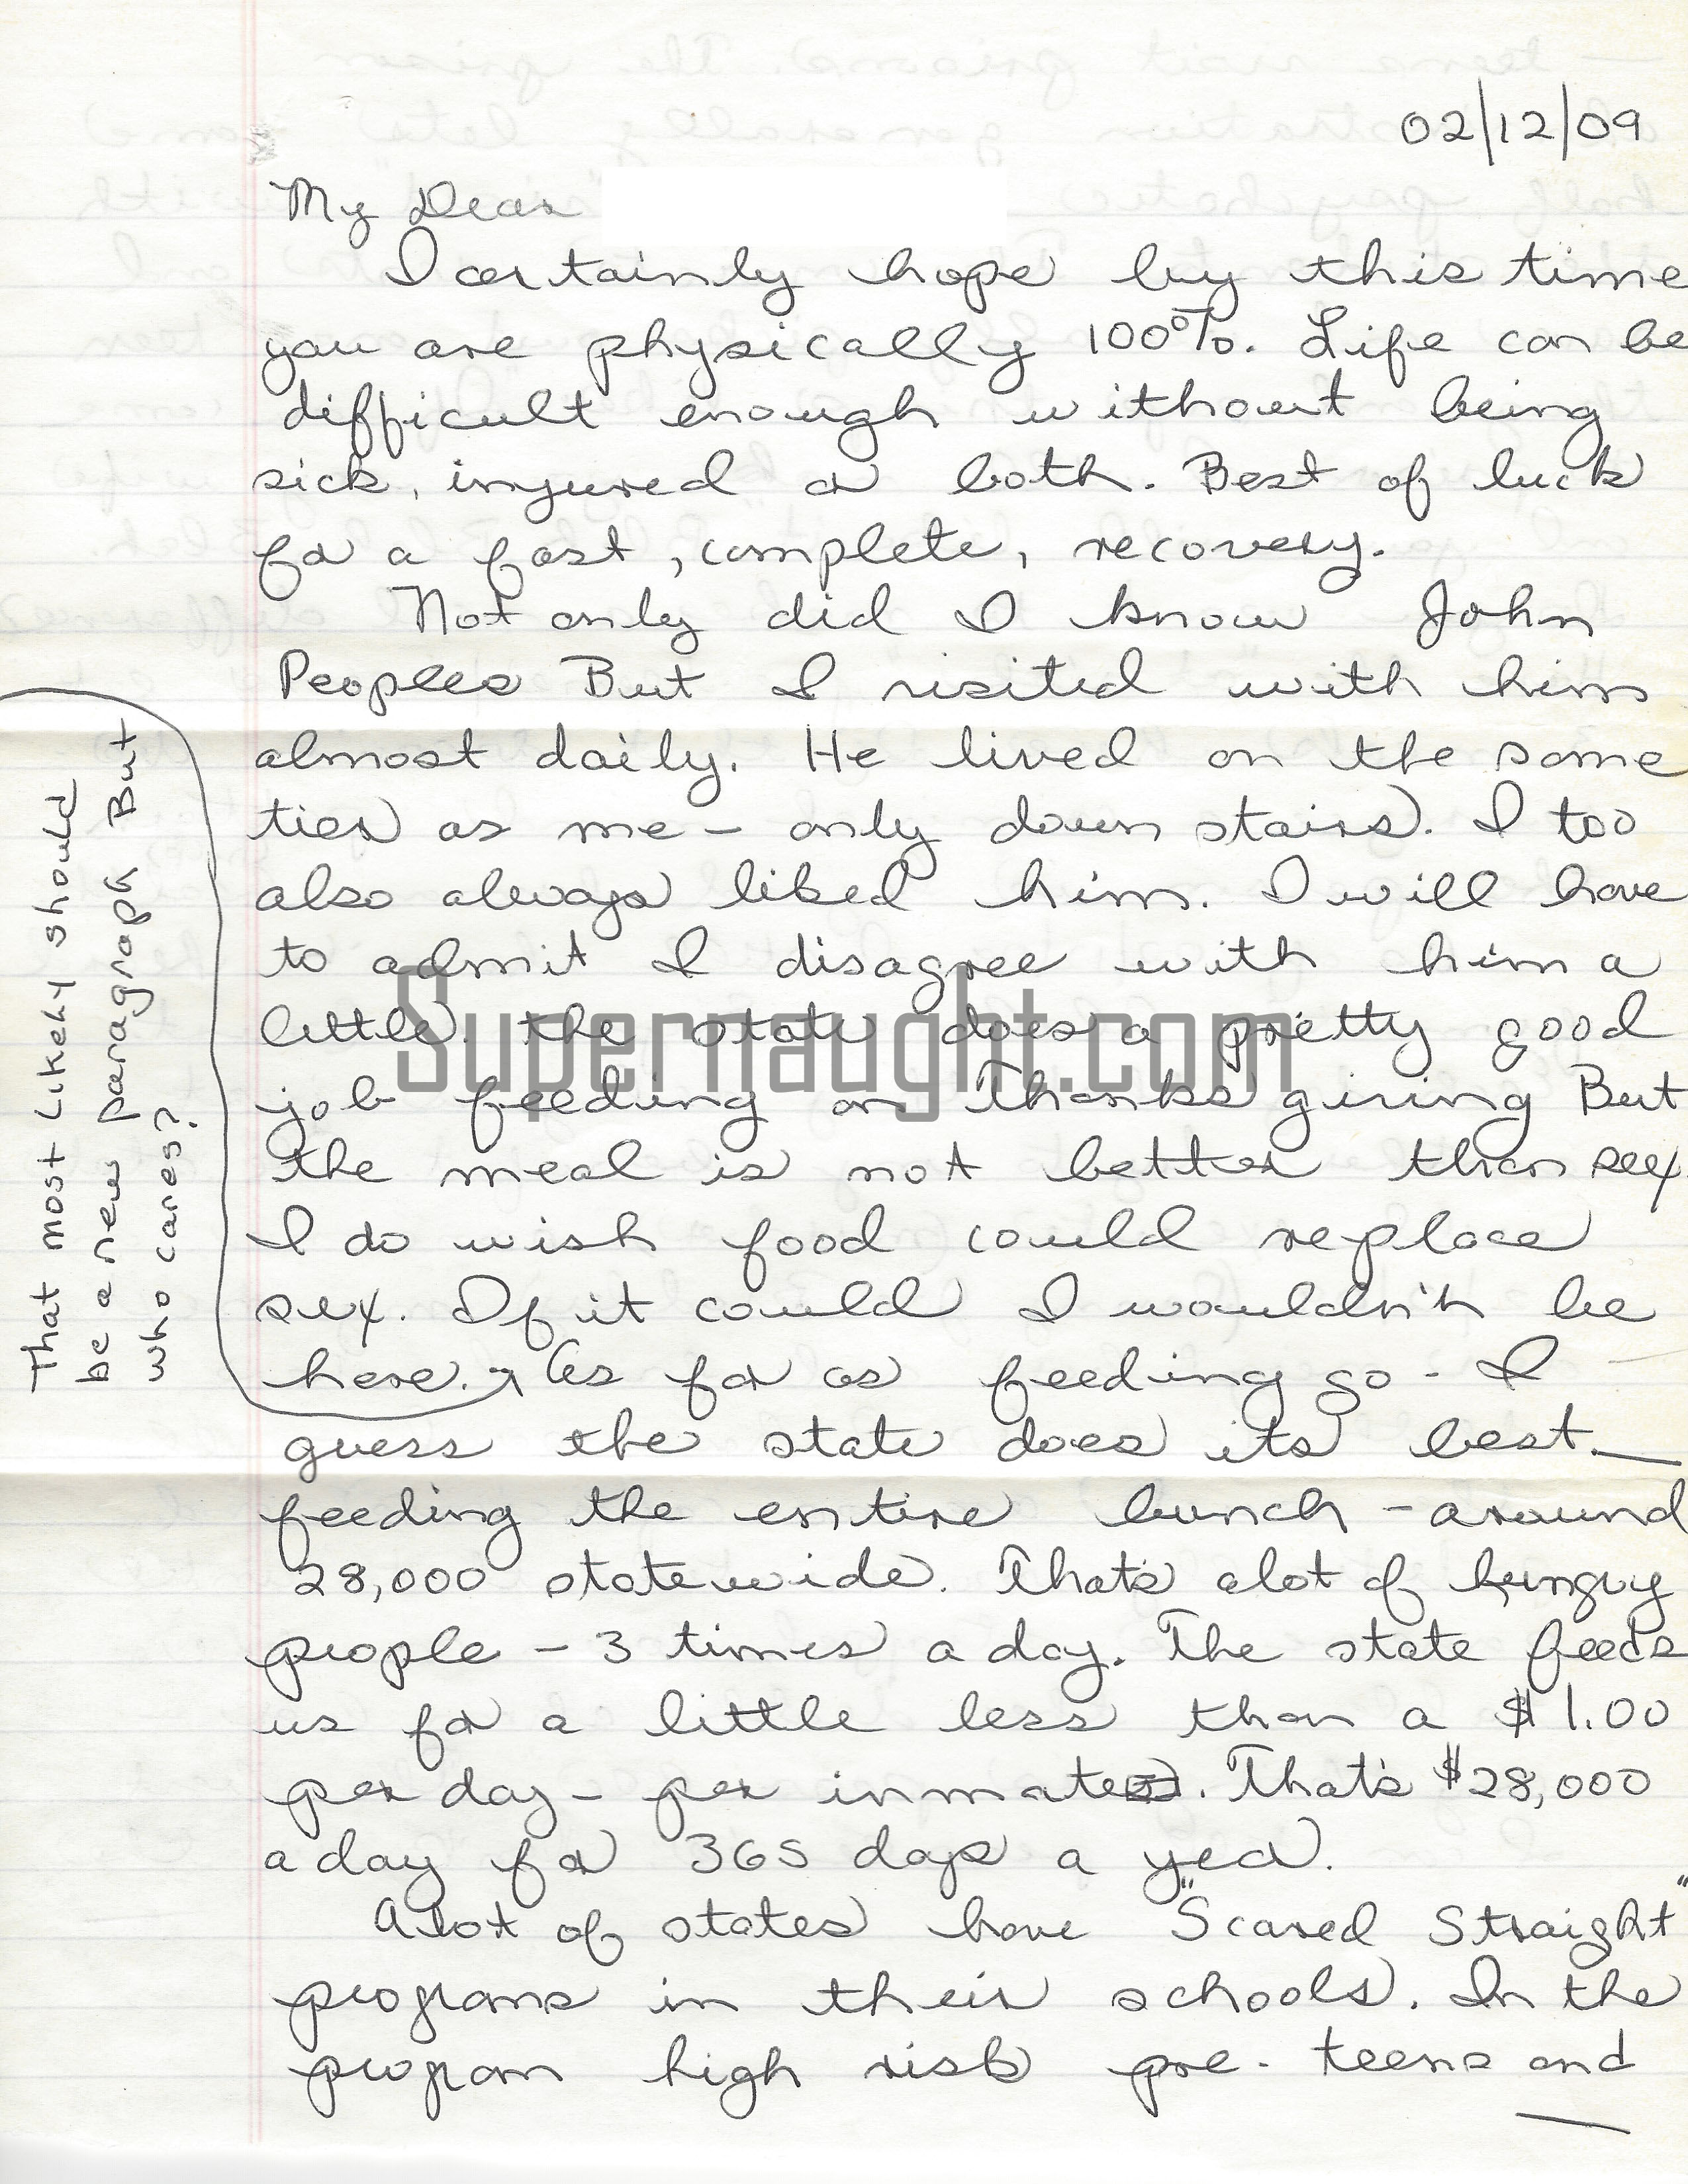 02/12/09
My Dear
I certainly hope by this time
you are physically 100%. Life can be
difficult enough without being
sick, injured or both. Best of luck
for a fast, complete, recovery.
Not only did I know John
Peoples But I visited with him
almost daily. He lived on the same
tier as me - only down stairs. I too
also always liked him. I will have
to admit I disagree with him a
little. the state does a pretty good
job feeding on Thanksgiving But
the meal is not better than sex.
I do wish food could replace
sex. If it could I wouldn't be
here. As for as feeding go - I
guess the state does its best -
feeding the entire bunch - around
28,000 statewide. That's alot of hungry
people - 3 times a day. The state feeds
us for a little less than a $1.00
per day - per inmate. That's $28,000
a day for 365 days a year.
Alot of states have "Scared Straight"
programs in their schools. In the
program high risk pre-teens and
That most Likely should
be a new paragraph But
who cares?
Supernaught.com